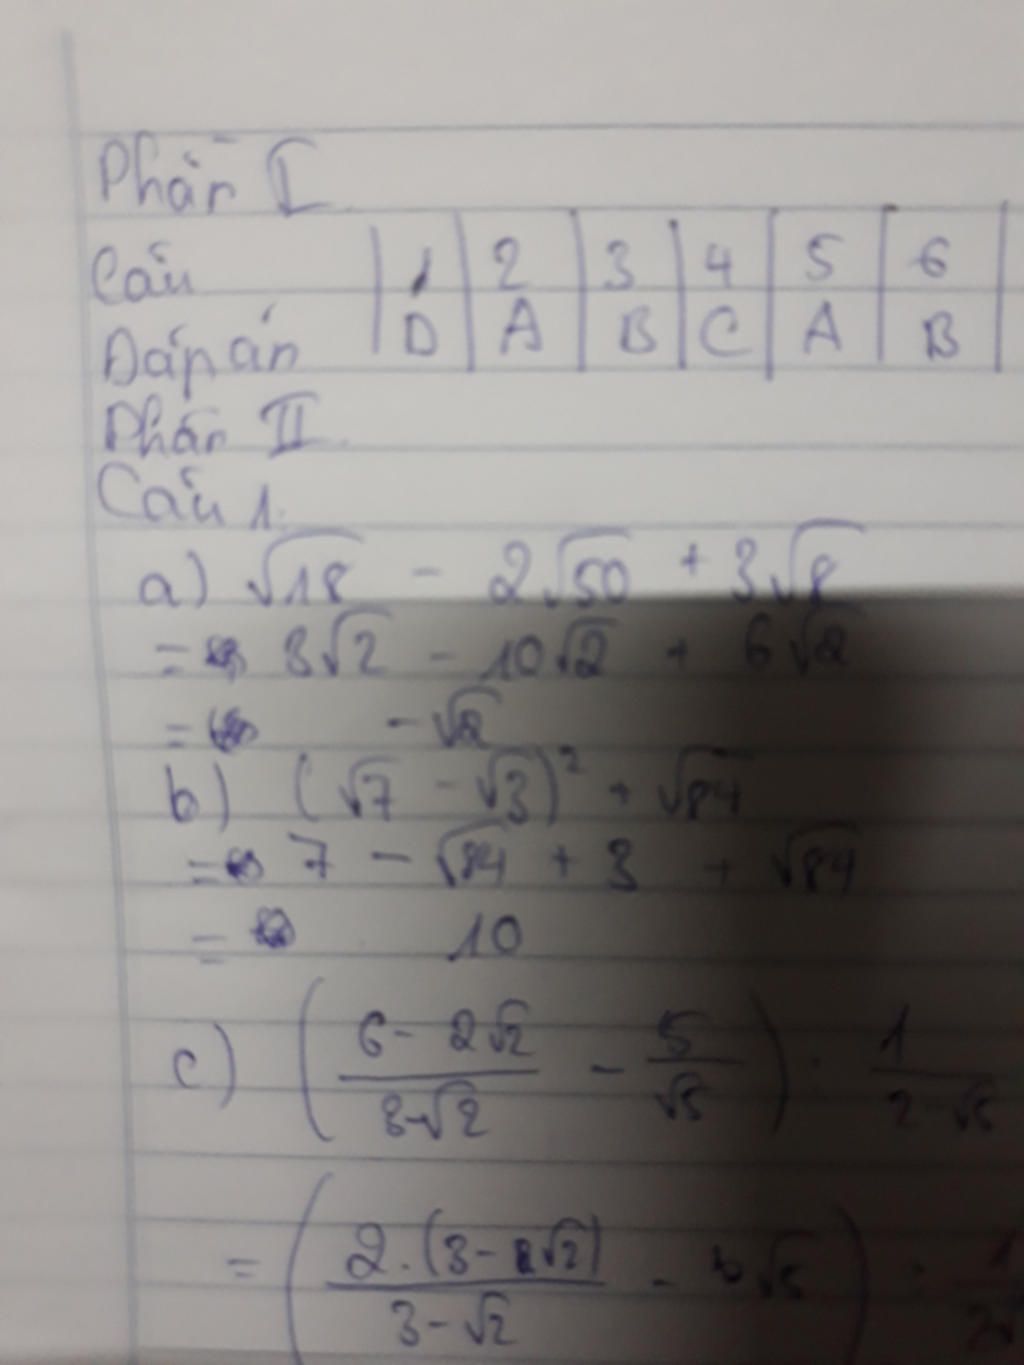 Phần I
Câu 1 2 3 4 5 6
Đáp án D A B C A B
Phần II
Câu 1.
a) √18 - 2√50 + 3√8
= 3√2 - 10√2 + 6√2
= -√2
b) (√7 - √3)² + √84
= 7 - √84 + 3 + √84
= 10
c) ((6 - 2√2)/(3-√2) - 5/√5) : 1/(2-√5)
= ((2.(3-√2))/(3-√2) - √5) :